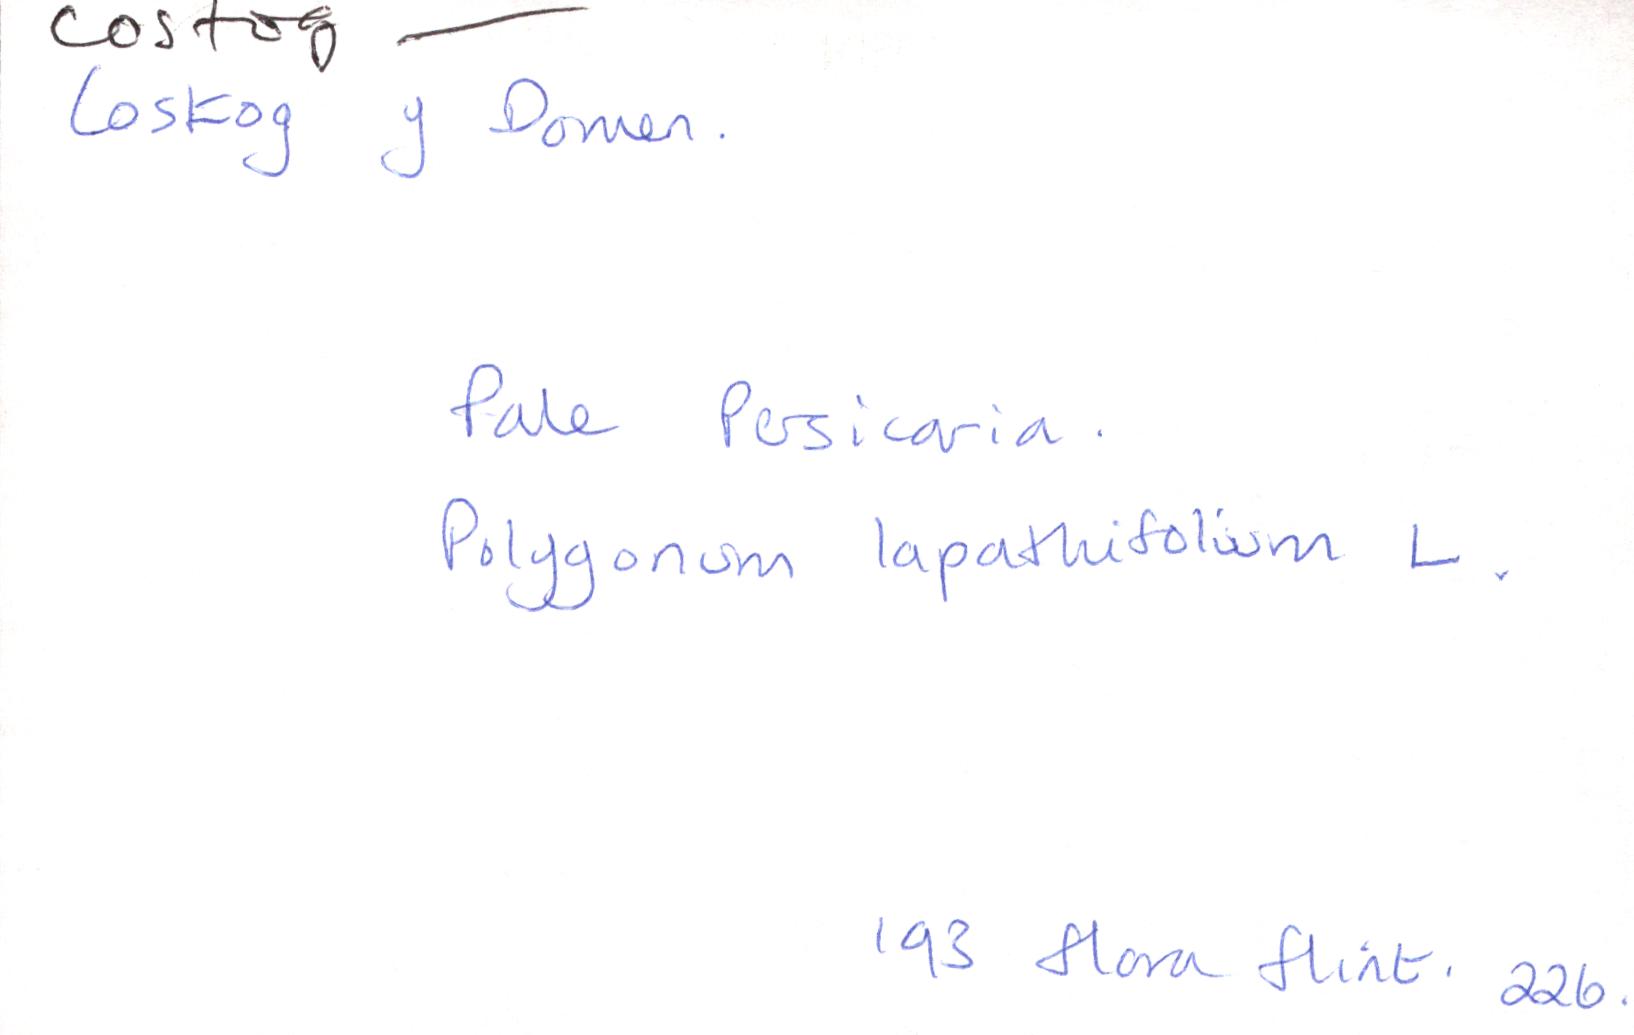 costog —
Coskog y Domen.
Pale Persicaria.
Polygonum lapathifolium L.
193 flora flint. 226.